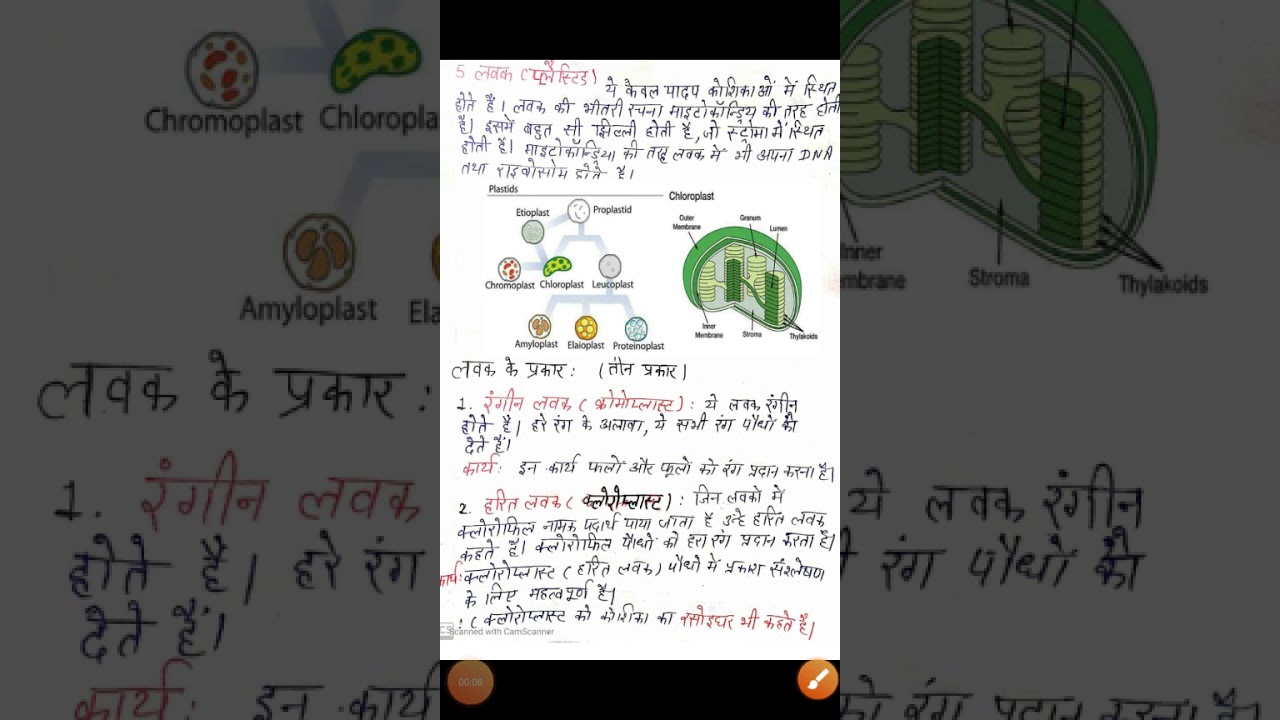 5 लवक (प्लैस्टिड)
ये केवल पादप कोशिकाओं में स्थित
होते हैं। लवक की भीतरी रचना माइटोकॉन्ड्रिय की तरह होती
है। इसमें बहुत सी झिल्ली होती है, जो स्ट्रोमा में स्थित
होती है। माइटोकॉन्ड्रिया की तरह लवक में भी अपना DNA
तथा राइबोसोम होते हैं।
Plastids
Chloroplast
Etioplast
Proplastid
Chromoplast
Chloroplast
Leucoplast
Amyloplast
Elaioplast
Proteinoplast
Outer Membrane
Granum
Lumen
Inner Membrane
Stroma
Thylakoids
लवक के प्रकार: (तीन प्रकार)
1. रंगीन लवक (क्रोमोप्लास्ट): ये लवक रंगीन
होते हैं। हरे रंग के अलावा, ये सभी रंग पौधों को
देते हैं।
कार्य: इन कार्य फलों और फूलों को रंग प्रदान करना है।
2. हरित लवक (क्लोरोप्लास्ट): जिन लवको में
क्लोरोफिल नामक पदार्थ पाया जाता है उन्हे हरित लवक
कहते है। क्लोरोफिल पौधो को हरा रंग प्रदान करता है।
कार्य: क्लोरोप्लास्ट (हरित लवक) पौधो में प्रकाश संश्लेषण
के लिए महत्वपूर्ण है।
: (क्लोरोप्लास्ट को कोशिका का रसोइघर भी कहते है।
CS Scanned with CamScanner
00:08
Chromoplast
Chloropla
Amyloplast
Ela
लवक के प्रकार:
1. रंगीन लवक
होते हैं। हरे रंग
देते हैं।
कार्य: इन कार्य
Inner
mbrane
Stroma
Thylakoids
ये लवक रंगीन
रंग पौधों को
को रंग प्रदान करना है।